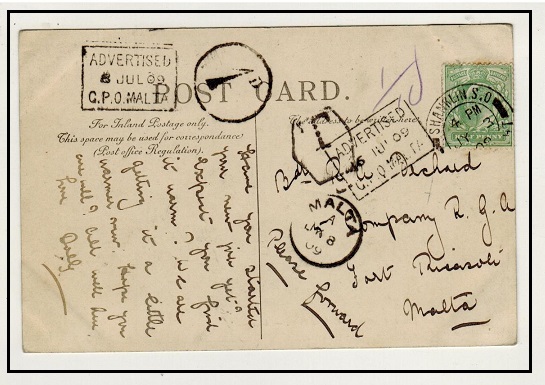 ADVERTISED
8 JUL 09
G.P.O. MALTA
POST CARD.
For Inland Postage only.
This space may be used for correspondence
(Post office Regulation).
The Address to be written here
Have you started
your new job yet?
I expect you find
it warm. We are
getting it a little
warmer now. Hope you
are well. All well here.
Love
T
ADVERTISED
JUL 09
G.P.O. MALTA
SHANKLIN S.O
4 PM
MALTA
A
8
09
Company R. G. A
Fort Ricasoli
Malta
Please forward